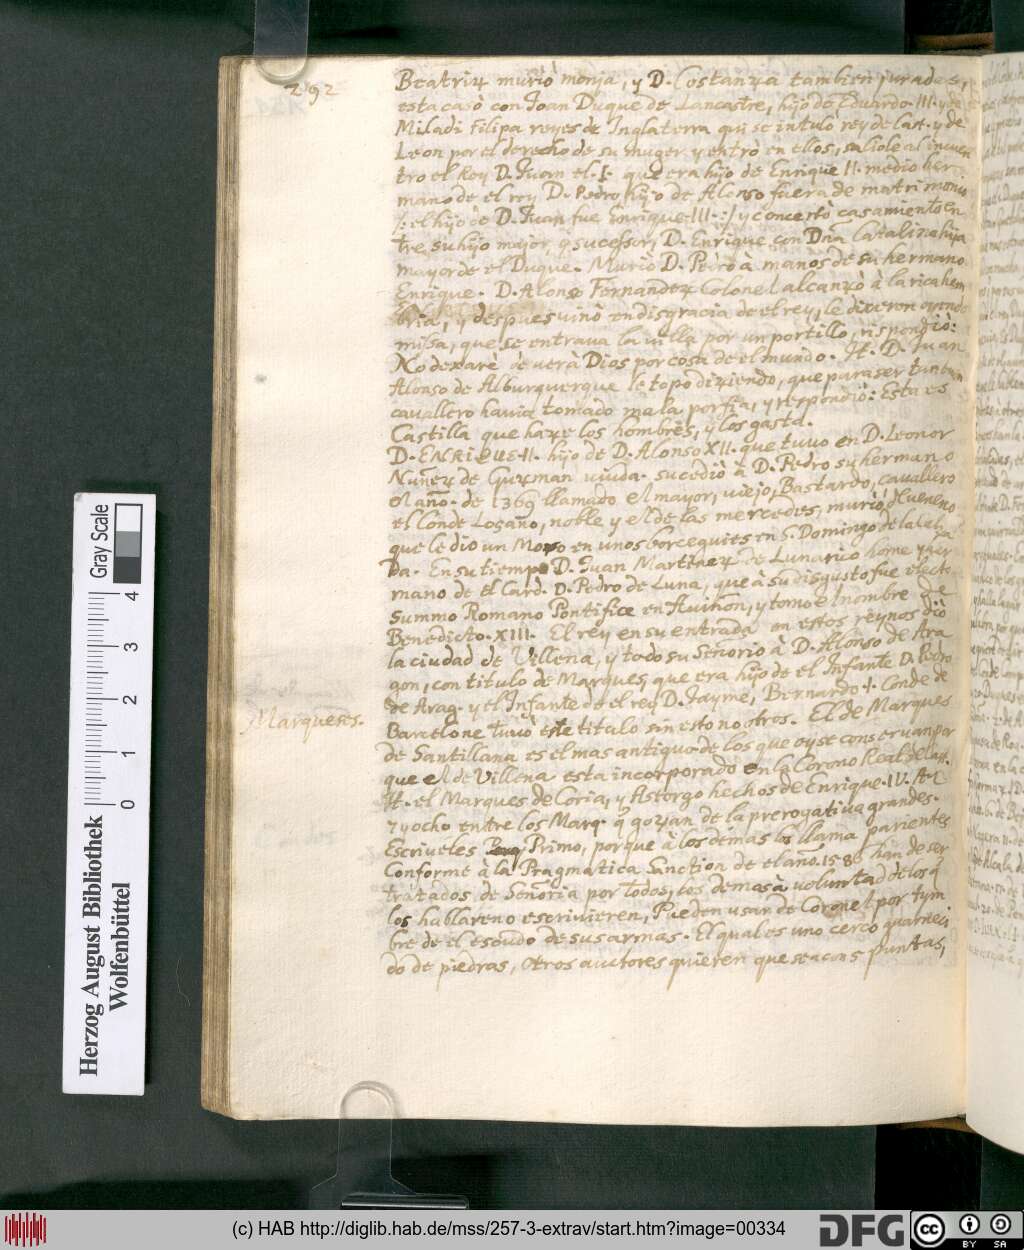 292
Beatriz murió monja, y D. Costanza tambien jurada
esta casó con Joan Duque de Lancastre, hijo de Eduardo III. y de
Miladi Filipa reyes de Inglaterra qui se intuló rey de Cast. y de
Leon por el derecho de su muger y entró en ellos, saliole al incuen
tro el Rey D. Juan el. I. que era hijo de Enrique II. medio her
mano de el rey D. Pedro, hijo de Alonso fuera de matrimonio
/: el hijo de D. Juan fue Enrique III :/ y concertò casamiento en
tre su hijo major, q sucessor, D. Enrique con Dña Catalina hija
mayor de el Duque. Murió D. Pedro à manos de su hermano
Enrique. D. Alonso Fernandez Colonel alcanzò à la rica hem
bria, y despues vino en disgracia de el rey, le dixeron oyendo
missa, que se entrava la villa por un portillo, rispondiò:
No dexarè de ver à Dios por cosa de el mundo. It. D. Juan
Alonso de Alburquerque le topò diziendo, que para ser tan buen
cavallero havia tomado mala porfia, y respondiò: Esta es
Castilla que haze los hombres, y los gasta.
D. ENRIQUE II. hijo de D. Alonso XII. que tuvo en D. Leonor
Nuñez de Guzman viuda. sucediò à D. Pedro su hermano
el año. de 1369 llamado el mayor, viejo, Bastardo, cavallero
el Conde Losano, noble y el de las mercedes, muriò, de veneno
que le dio un Moro en unos borceguies en S. Domingo de la Calça
da. En su tiempo D. Juan Martinez de Lunarico home y her
mano de el Card. D. Pedro de Luna, que à su disgusto fue electo
Summo Romano Pontifice en Aviñon, y tomo el nombre de
Benedicto. XIII. El rey en su entrada en estos reynos diò
la ciudad de Villena, y todo su Señorio à D. Alonso de Ara
gon, con titulo de Marques, que era hijo de el Infante D. Pedro
de Arag. y el Infante de el rey D. Jayme, Bernardo I. Conde de
Marqueses.
Barcelone tuvò este titulo sin esto no otros. El de Marques
de Santillana es el mas antiguo de los que oy se conservan por
que el de Villena esta incorporado en la Corono Real de Cast.
It. el Marques de Coria, y Astorgo hechos de Enrique. IV. Ay
7 y ocho entre los Marq. q gozan de la prerogativa grandes.
Escriveles Primo, porque à los demas los llama parientes
Conforme à la Pragmatica Sanction de el año. 158 han de ser
tratados de Señoria por todos, los demas à voluntad de los q
los hablareno escrivieren, Pueden usar de Coronel por tym
bre de el escudo de sus armas. El qual es uno cerco guarneci
do de piedras, Otros auctores quieren que sea con 5 puntas,
Gray Scale
0 1 2 3 4
Herzog August Bibliothek
Wolfenbüttel
(c) HAB http://diglib.hab.de/mss/257-3-extrav/start.htm?image=00334
DFG
cc BY SA